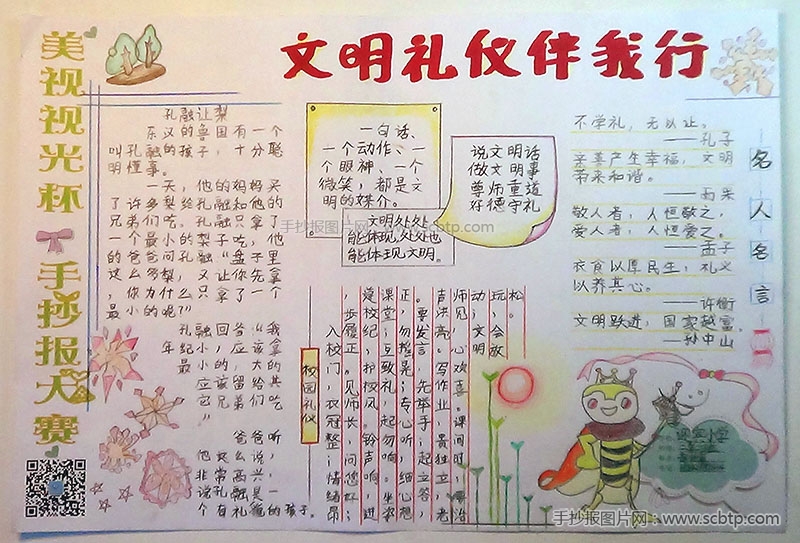 美视视光杯 手抄报大赛
文明礼仪伴我行
孔融让梨
东汉的鲁国有一个
叫孔融的孩子，十分聪
明懂事。
一天，他的妈妈买
了许多梨给孔融和他的
兄弟们吃。孔融只拿了
一个最小的梨子吃，他
的爸爸问孔融“盘子里
这么多梨，又让你先拿
，你为什么只拿了一个
最小的呢？”
孔融回答“我
年纪小，应该拿
最小的，大的
应该留给其
它兄弟们吃
”
爸爸听
他这么说，
非常高兴，
说孔融是一
个有礼貌的孩子。
一句话、
一个动作、一
个眼神、一个
微笑，都是文
明的媒介。
文明处处
能体现，处处也
能体现文明。
说文明话
做文明事
尊师重道
好德守礼
手抄报图片网：www.scbtp.com
校园礼仪
入校门，衣冠整；情绪昂，
步履正。见师长，问您好；
遵校纪，护校风。铃声响，进
课堂；互致礼，起勿响。坐姿
正，勿摇晃；专心听，细心想
要发言，先举手；起立答，
声洪亮。写作业，贵独立，老
师见，心欢喜。课间时，要活
动；文明
玩，会放
松。
名人名言
不学礼，无以让。
——孔子
亲善产生幸福，文明
带来和谐。
——雨果
敬人者，人恒敬之，
爱人者，人恒爱之。
——孟子
衣食以厚民生，礼义
以养其心。
——许衡
文明跃进，国家越富。
——孙中山
手抄报图片网：www.scbtp.com